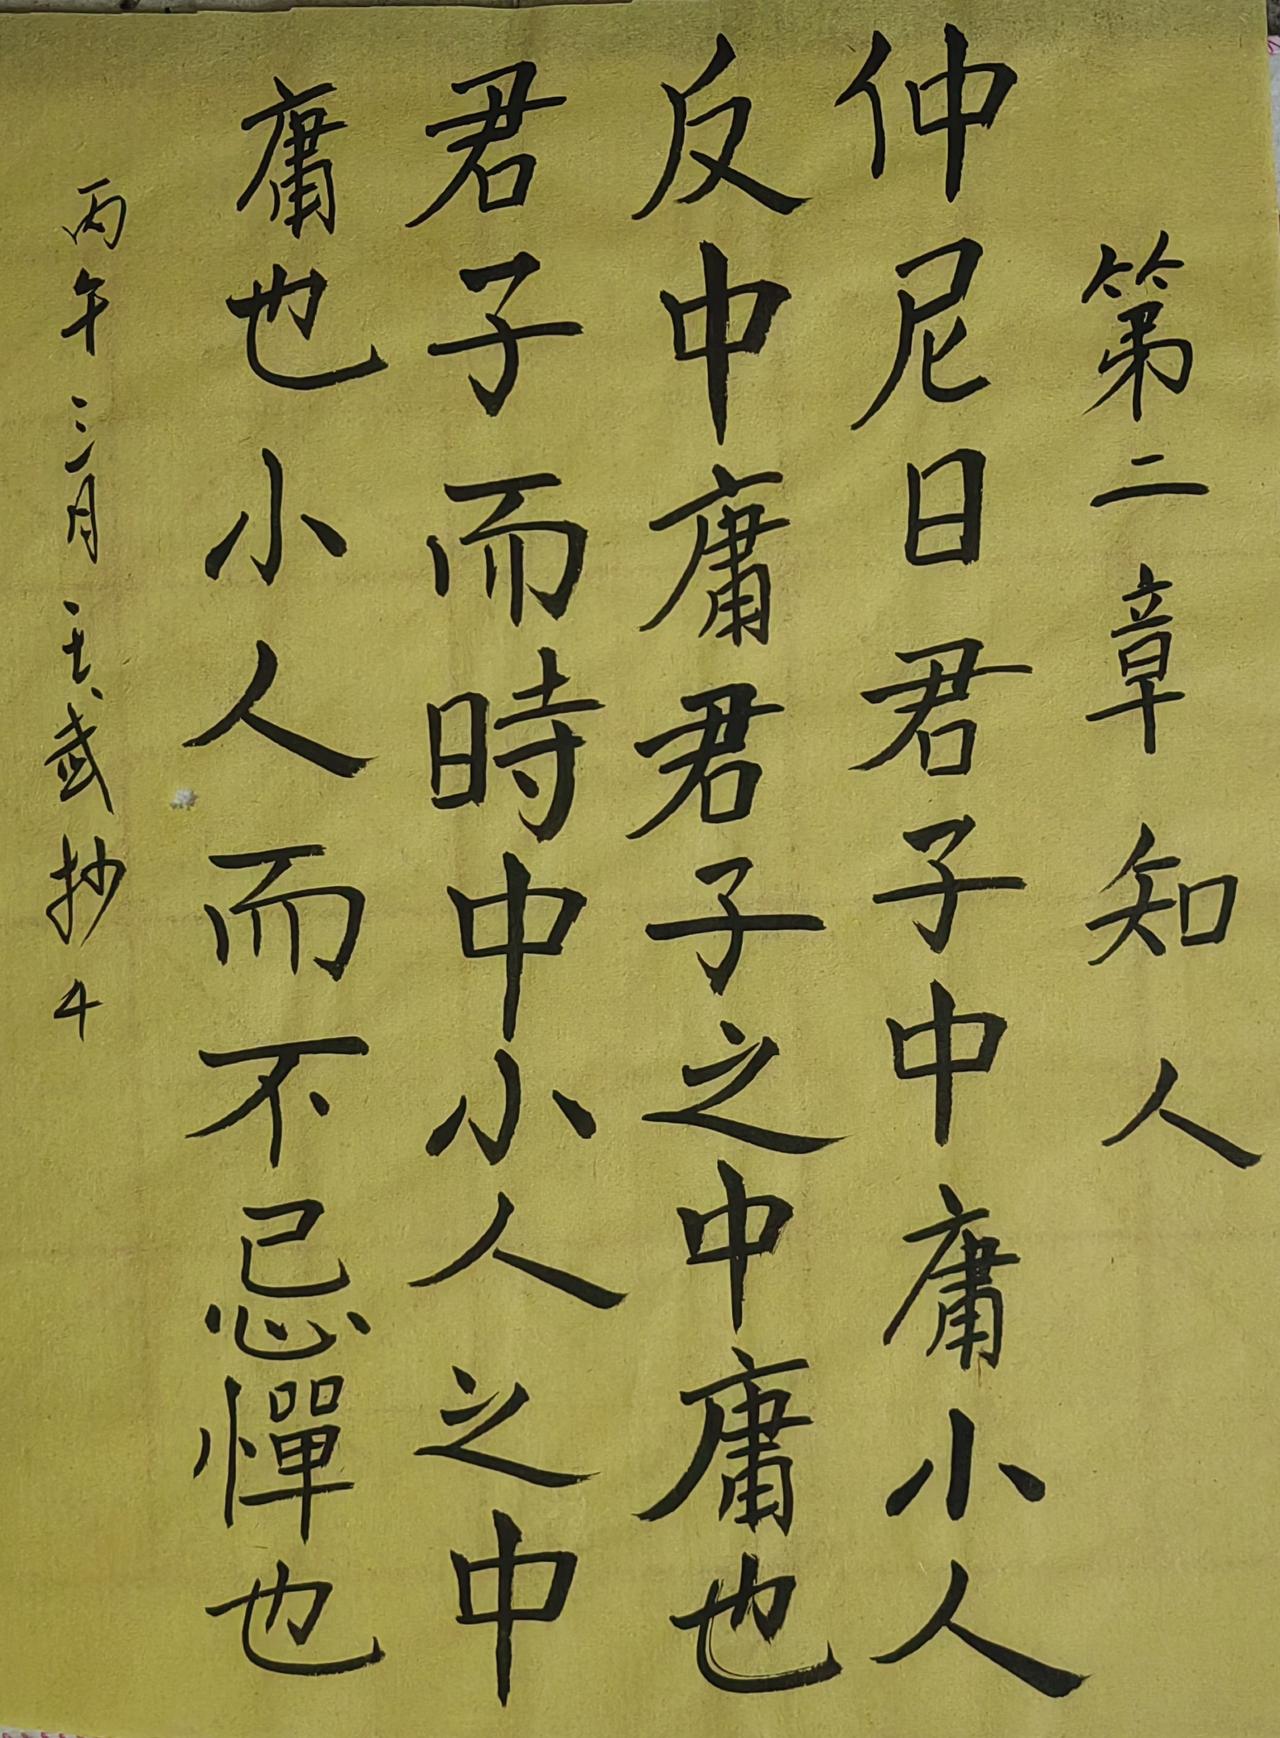 第二章 知人
仲尼曰君子中庸小人
反中庸君子之中庸也
君子而時中小人之中
庸也小人而不忌憚也
丙午三月 抄